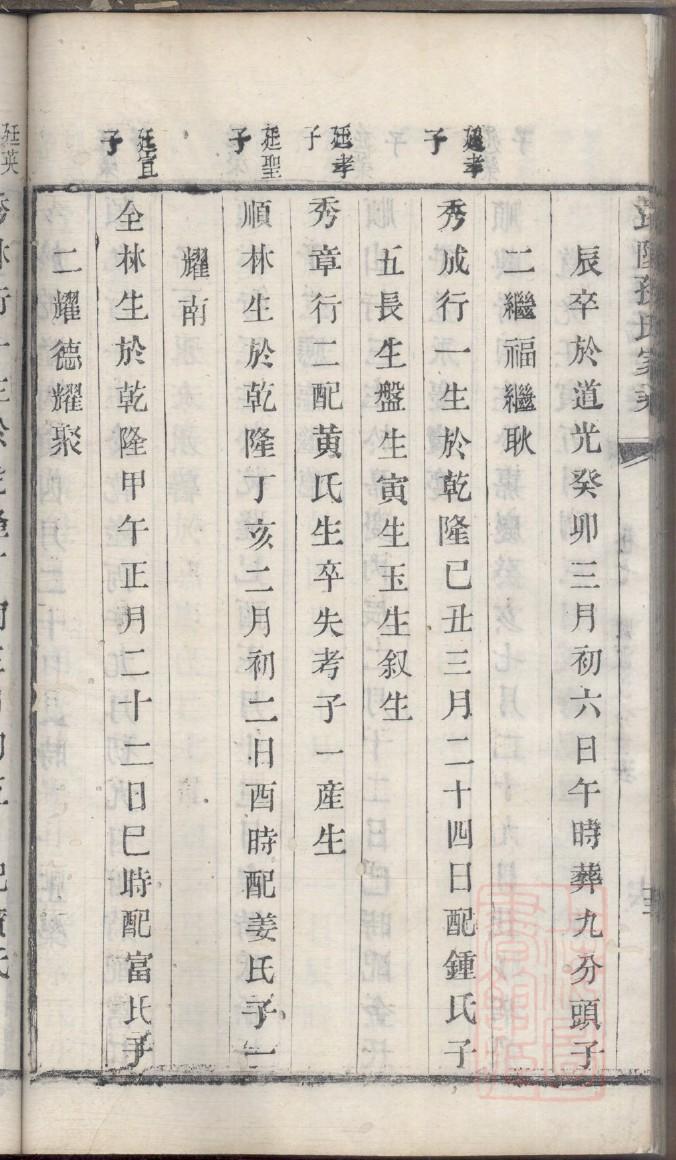 孫氏家
辰卒於道光癸卯三月初六日午時葬九分頭子
二繼福繼耿
廷孝子
秀成行一生於乾隆己丑三月二十四日配鍾氏子
五長生盤生寅生玉生叙生
廷孝子
秀章行二配黄氏生卒失考子一産生
廷聖子
順林生於乾隆丁亥二月初二日酉時配姜氏子一
耀南
廷宜子
全林生於乾隆甲午正月二十二日巳時配富氏子
二耀德耀聚
廷英